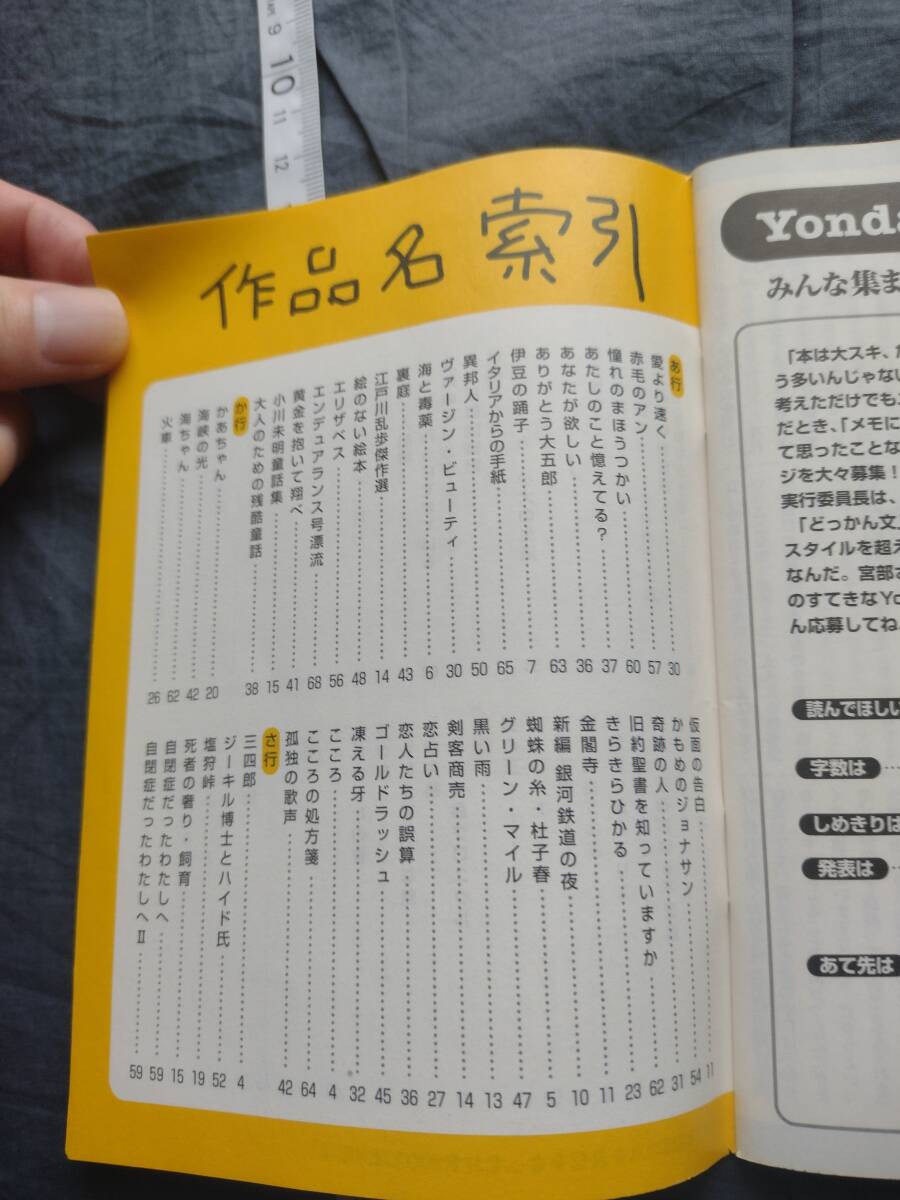 9
10
11
12
作品名索引
あ行
愛より速く 30
赤毛のアン 57
憧れのまほうつかい 60
あたしのこと憶えてる? 37
あなたが欲しい 36
ありがとう大五郎 63
伊豆の踊子 7
イタリアからの手紙 65
異邦人 50
ヴァージン・ビューティ 30
海と毒薬 6
裏庭 43
江戸川乱歩傑作選 14
絵のない絵本 48
エリザベス 56
エンデュアランス号漂流 68
黄金を抱いて翔べ 41
小川未明童話集 15
大人のための残酷童話 38
か行
かあちゃん 20
海峡の光 42
海ちゃん 62
火車 26
仮面の告白 11
かもめのジョナサン 54
奇跡の人 31
旧約聖書を知っていますか 62
きらきらひかる 23
金閣寺 11
新編 銀河鉄道の夜 10
蜘蛛の糸・杜子春 5
グリーン・マイル 47
黒い雨 13
剣客商売 14
恋占い 27
恋人たちの誤算 36
ゴールドラッシュ 45
凍える牙 32
こころ 4
こころの処方箋 64
孤独の歌声 42
さ行
三四郎 4
ジーキル博士とハイド氏 52
塩狩峠 19
死者の奢り・飼育 15
自閉症だったわたしへ 59
自閉症だったわたしへⅡ 59
Yonda
みんな集ま
「本は大スキ、た
う多いんじゃない
考えただけでも
だとき、「メモに
て思ったことな
ジを大々募集!
実行委員長は、
「どっかん文
スタイルを超え
なんだ。宮部さ
のすてきなYo
ん応募してね
読んでほしい
字数は
しめきりは
発表は
あて先は